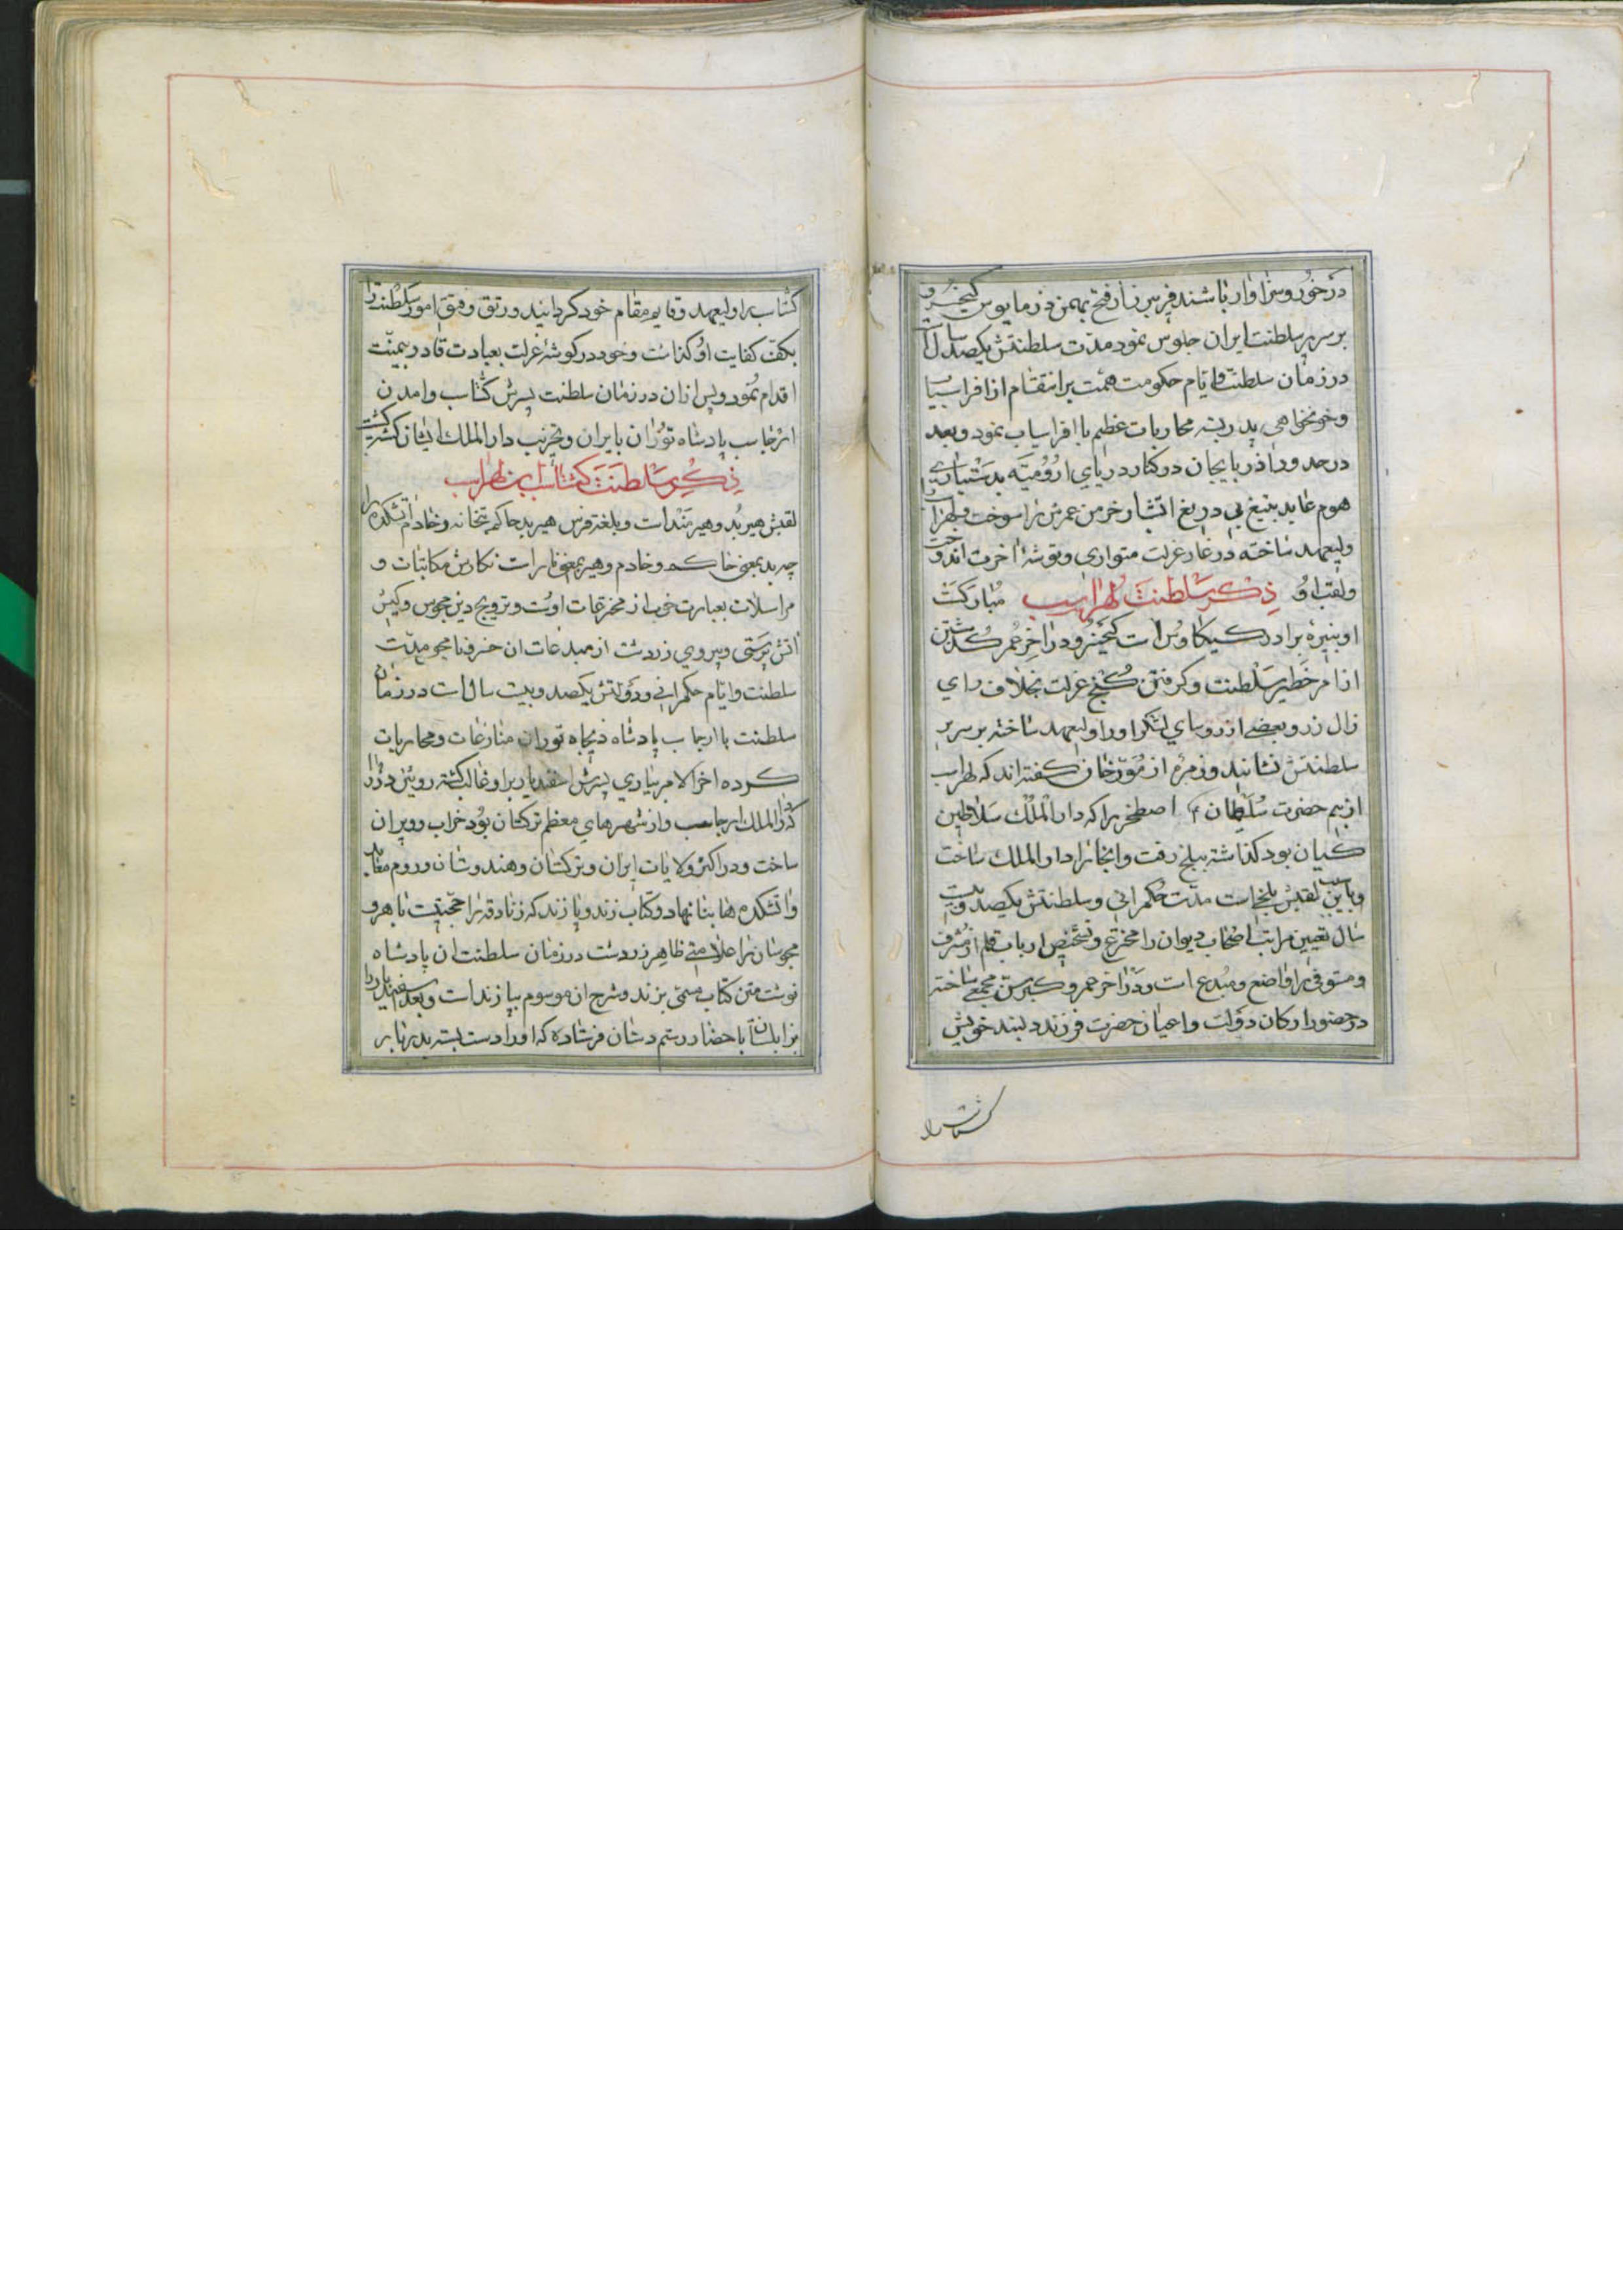 درخور و سزاوار باشند فریبرز از فتح بهمن دز مایوس کیخسرو
بر سریر سلطنت ایران جلوس نمود مدت سلطنتش یکصد سال است
در زمان سلطنت و ایام حکومت همت بر انتقام از افراسیاب
و خونخواهی پدر بسته محاربات عظیم با افراسیاب نمود و بعد
در حدود اذربایجان در کنار دریای ارومیه بدستیاری
هوم عابد بتیغ بی دریغ اتشبار خرمن عمرش را سوخت و لهراسب را
ولیعهد ساخته در غار عزلت متواری و توشهٔ اخرت اندوخت
و لقب او مبارکست ذکر سلطنت لهراسب
او نبیرهٔ برادر کیکاوس است کیخسرو در اخر عمر گذشتن
از امر خطیر سلطنت و گرفتن کنج عزلت بخلاف رای
زال زر و بعضی از روسای لشکر او را ولیعهد ساخته بر سریر
سلطنتش نشانید و زمرهٔ از مورخان گفته‌اند که لهراسب
از بیم حضرت سلیمان ع اصطخر را که دار الملک سلاطین
کیان بود گذاشته ببلخ رفت و انجا را دار الملک ساخت
و باین سبب لقبش بلخی است مدت حکمرانی و سلطنتش یکصد و بیست
سال تعیین مراتب اصحاب دیوان را مخترع و تشخیص ارباب قلم از مشرف
و مستوفی را واضع و مبدع است و در اخر عمر و کبر سن مجمعی ساخته
در حضور ارکان دولت و اعیان حضرت فرزند دلبند خویش
گشتاسب را
گشتاسب را ولیعهد و قایم مقام خود گردانید و رتق و فتق امور سلطنت را
بکف کفایت او گذاشت و خود در گوشهٔ عزلت بعبادت قادر بیمنت
اقدام نمود و پس ازان در زمان سلطنت پسرش گشتاسب و امدن
ارجاسب پادشاه توران بایران و تخریب دار الملک ایشان کشته گشت
ذکر سلطنت گشتاسب ابن لهراسب
لقبش هیربد و هیربند است و بلغة فرس هیربد حاکم بتخانه و خادم اتشکده را
چه بد بمعنی حاکم و خادم و هیر بمعنی نار است نگارش مکاتبات و
مراسلات بعبارت خوب از مخترعات اوست و ترویج دین مجوس و کیش
اتش پرستی و پیروی زردشت از مبدعات ان خسرو نامجو مدت
سلطنت و ایام حکمرانی و دولتش یکصد و بیست سال است در زمان
سلطنت با ارجاسب پادشاه ذیجاه توران منازعات و محاربات
کرده اخر الامر بیاری پسرش اسفندیار بر او غالب گشته رویین دز را
که دار الملک ارجاسب و از شهرهای معظم ترکستان بود خراب و ویران
ساخت و در اکثر ولایات ایران و ترکستان و هندوستان و روم معابد
و اتشکده‌ها بنا نهاد و کتاب زند و پازند که زنادقه را حجتیست باهر و
مجوسان را علامتی ظاهر زردشت در زمان سلطنت ان پادشاه
نوشت متن کتاب مسمی بزند و شرح ان موسوم بپازند است و بعد اسفندیار را
بزابلستان باحضار رستم دستان فرستاده که او را دست بسته بدربار